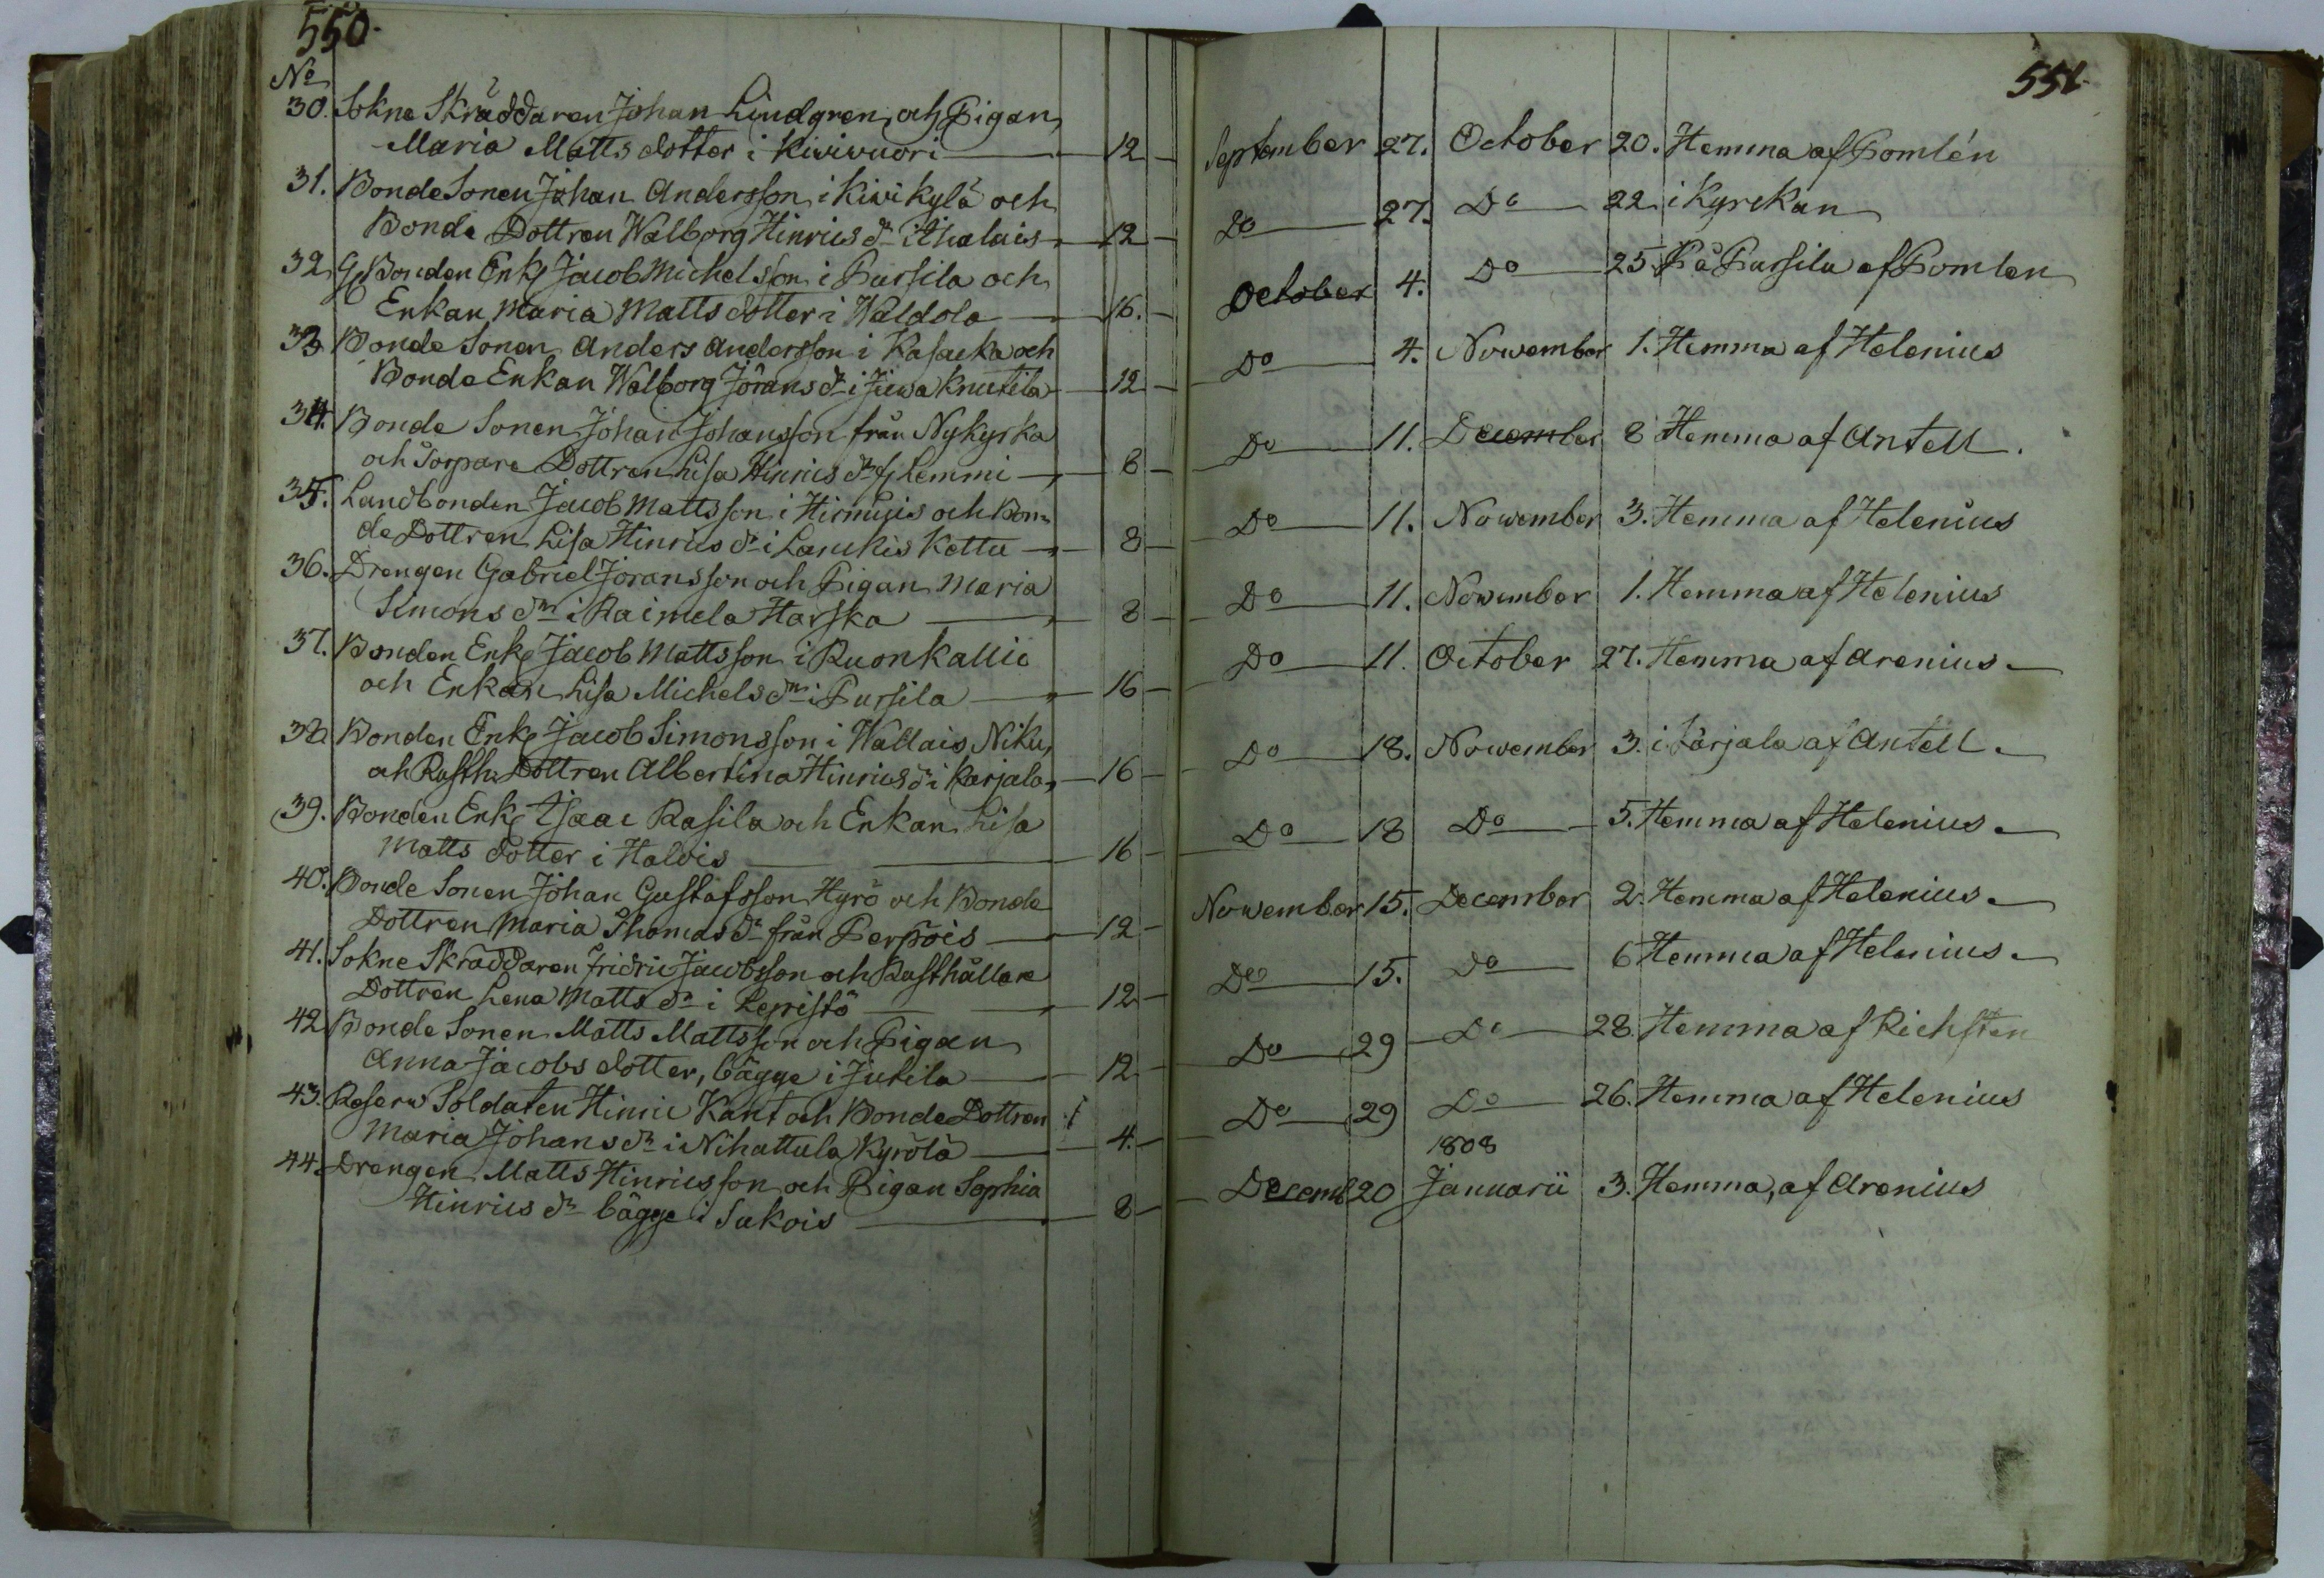 550.
No
30. Sokne Skräddaren Johan Lindgren, och Pigan
Maria Matts dotter i Kiwivuori — 12 —
31. Bonde Sonen Johan Andersson i Kiwikylä och
Bonde Dottren Walborg Hinrics dr i Ihalais — 12 —
32. Bonden Enkl Jacob Michelsson i Pursila och
Enkan Maria Matts dotter i Waldola — 16. —
33 Bonde Sonen Anders Andersson i Kasacka och
Bonde Enkan Walborg Jörans dr i Juva Knutila — 12 —
34. Bonde Sonen Johan Johansson från Nykyrka
och Torpare Dottren Lisa Hinrics dr fr Lemmi — 8 —
35. Landbonden Jacob Mattsson i Hirnujis och Bon-
de Dottren Lisa Hinrics dr i Laukis Kottu — 8 —
36. Drengen Gabriel Joransson och Pigan Maria
Simons dr i Raimela Harska — 8 —
37. Bonden Enkl Jacob Mattsson i Ruonkallio
och Enkan Lisa Michels dr i Pursila — 16 —
38 Bonden Enkl Jacob Simonsson i Wallais Niku,
och Rusth. Dottren Albertina Hinrics dr i Karjala, — 16 —
39. Bonden Enkl Isaac Rasila och Enkan Lisa
Matts dotter i Halvis — 16 —
40. Bonde Sonen Johan Gustafsson Hyrö och Bonde
Dottren Maria Thomas dr från Perpois — 12 —
41. Sokne Skräddaren Fridric Jacobsson och Rusthållare
Dottren Lena Matts dr i Lepistö — 12 —
42 Bonde Sonen Matts Mattsson och Pigan
Anna Jacobs dotter, bägge i Jutila — 12 —
43. Reserv Soldaten Hinric Kant och Bonde Dottren
Maria Johans dr i Nihattula Kyrölä — 4. —
44. Drengen Matts Hinricsson och Pigan Sophia
Hinrics dr bägge i Sukois — 8 —
551.
September 27. October 20. Hemma af Pomlén
Do — 27. Do — 22 i Kyrckan
October 4. Do — 25 På Pursila af Pomlen
Do — 4. November 1. Hemma af Helenius
Do — 11. December 8 Hemma af Antell.
Do — 11. November 3. Hemma af Helenius
Do — 11. November 1. Hemma af Helenius
Do — 11. October 27. Hemma af Arenius —
Do — 18. November 3. i Karjala af Antell —
Do — 18 Do — 5. Hemma af Helenius —
November 15. December 2. Hemma af Helenius —
Do — 15. Do — 6 Hemma af Helenius —
Do — 29 Do — 28. Hemma af Richsten
Do — 29 Do — 26. Hemma af Helenius
1808
Decemb 20 Januarii 3. Hemma, af Arenius